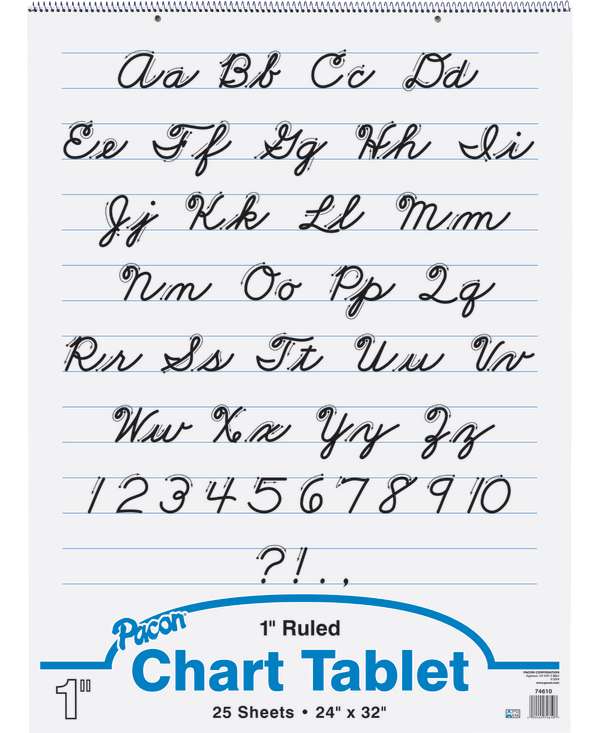 Aa Bb Cc Dd
Ee Ff Gg Hh Ii
Jj Kk Ll Mm
Nn Oo Pp Qq
Rr Ss Tt Uu Vv
Ww Xx Yy Zz
1 2 3 4 5 6 7 8 9 10
? ! . ,
Pacon
1" Ruled
Chart Tablet
1"
25 Sheets • 24" x 32"
PACON CORPORATION
74610